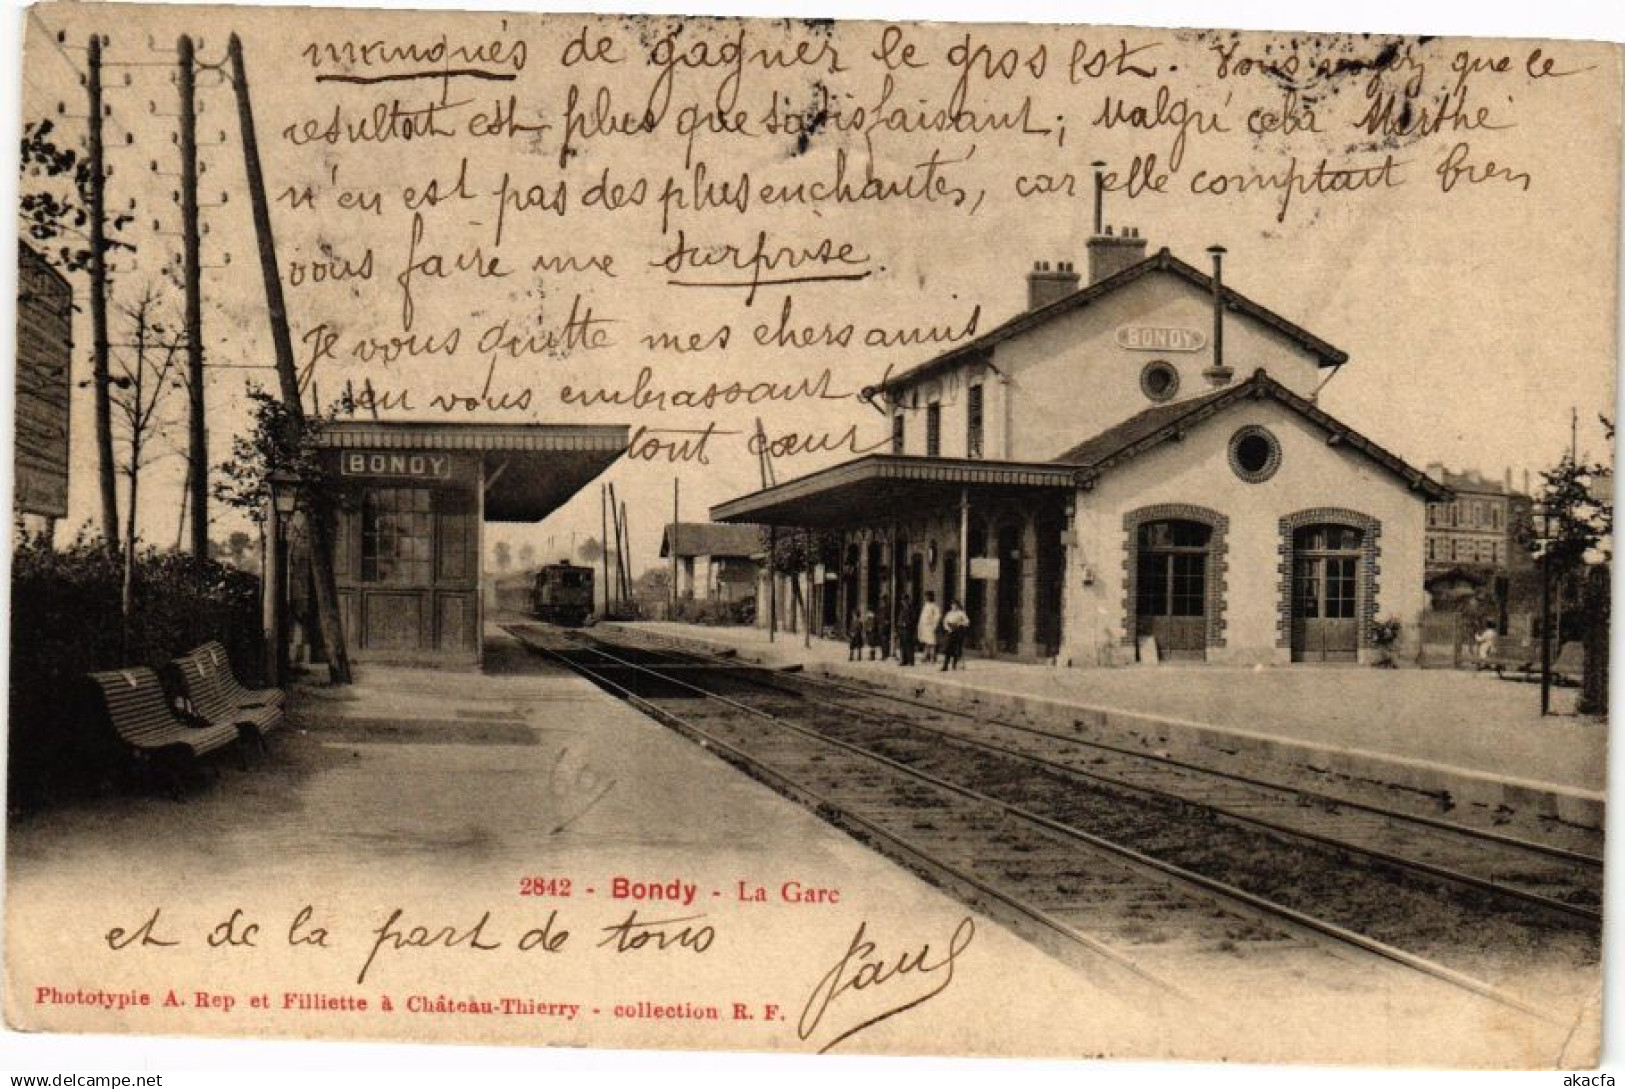 manqués de gagner le gros lot. Vous voyez que ce
resultat est plus que satisfaisant; Malgré cela Marthe
n'en est pas des plus enchantés, car elle comptait bien
vous faire une surprise.
Je vous quitte mes chers amis
en vous embrassant de
tout cœur
BONDY
BONDY
2842 - Bondy - La Gare
et de la part de tous
Paul
Phototypie A. Rep et Filliette à Château-Thierry - collection R. F.
60
delcampe.net
akacfa